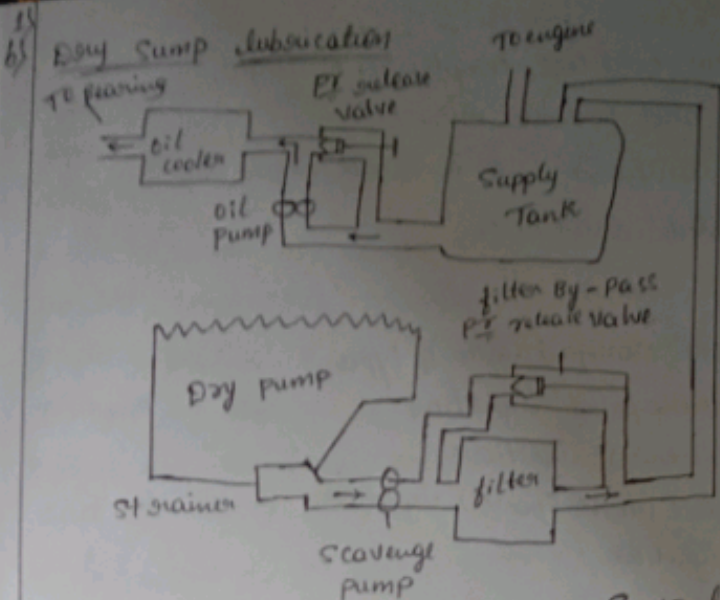 b) Dry Sump lubrication
To engine
To bearing
Pr release
valve
oil
cooler
Supply
Tank
oil
pump
filter By-pass
Pr release valve
Dry pump
filter
Strainer
Scavenge
pump